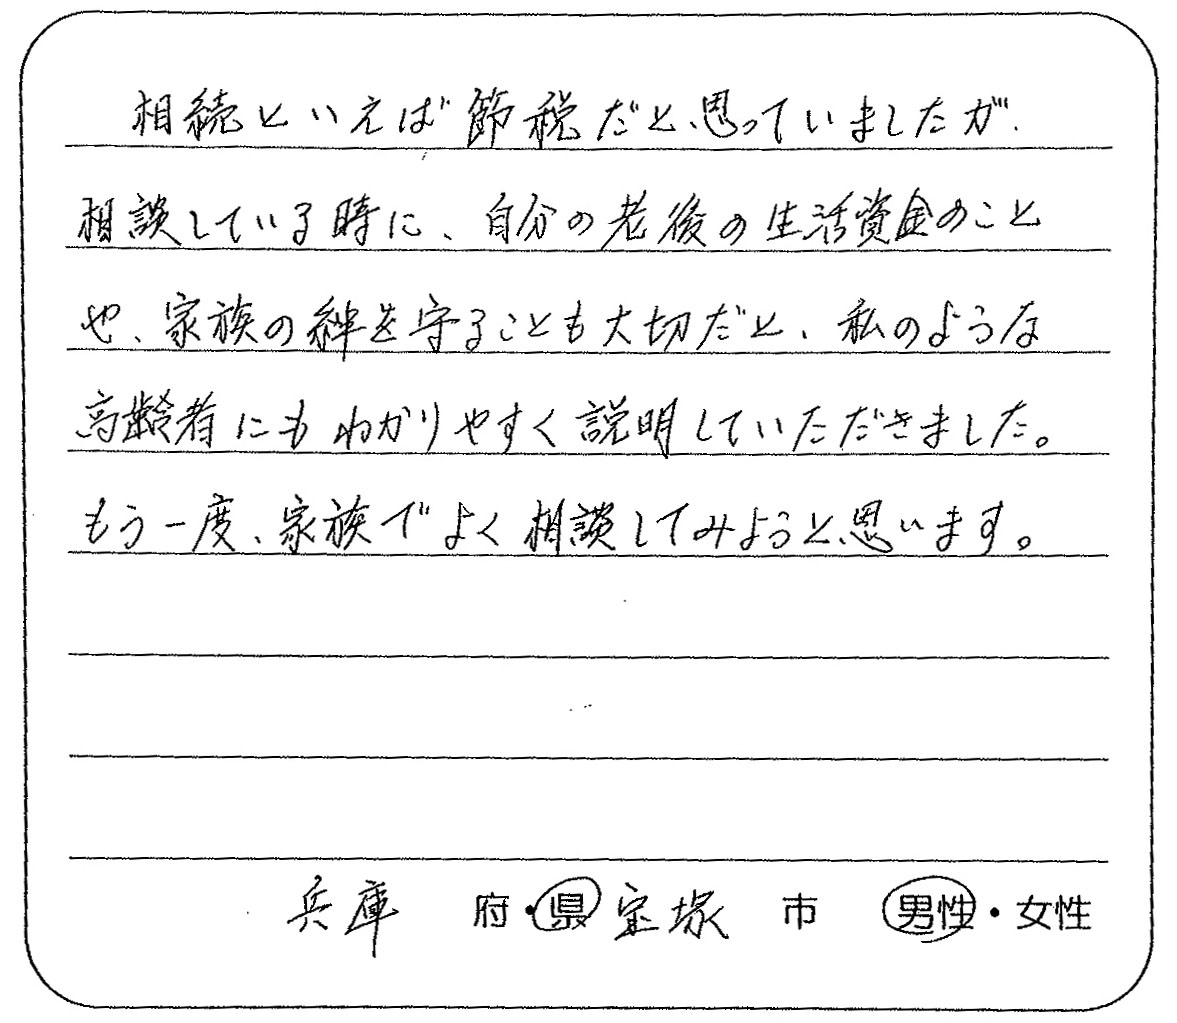 相続といえば節税だと思っていましたが、
相談している時に、自分の老後の生活資金のこと
や、家族の絆を守ることも大切だと、私のような
高齢者にもわかりやすく説明していただきました。
もう一度、家族でよく相談してみようと思います。
兵庫 府・県 宝塚 市 男性・女性